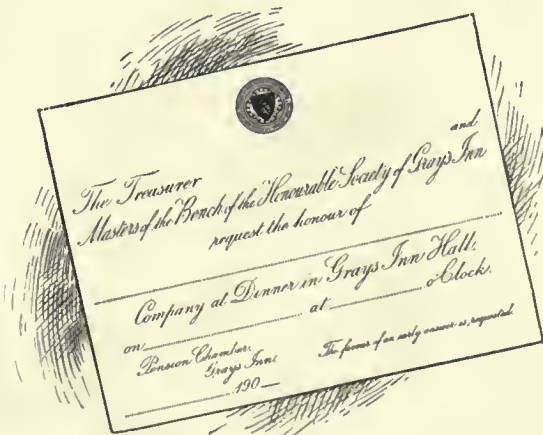 The Treasurer and
Masters of the Bench of the Honourable Society of Grays Inn
request the honour of
Company at Dinner in Grays Inn Hall.
on at o'Clock.
Pension Chamber,
Grays Inn. The favor of an early answer is requested.
190